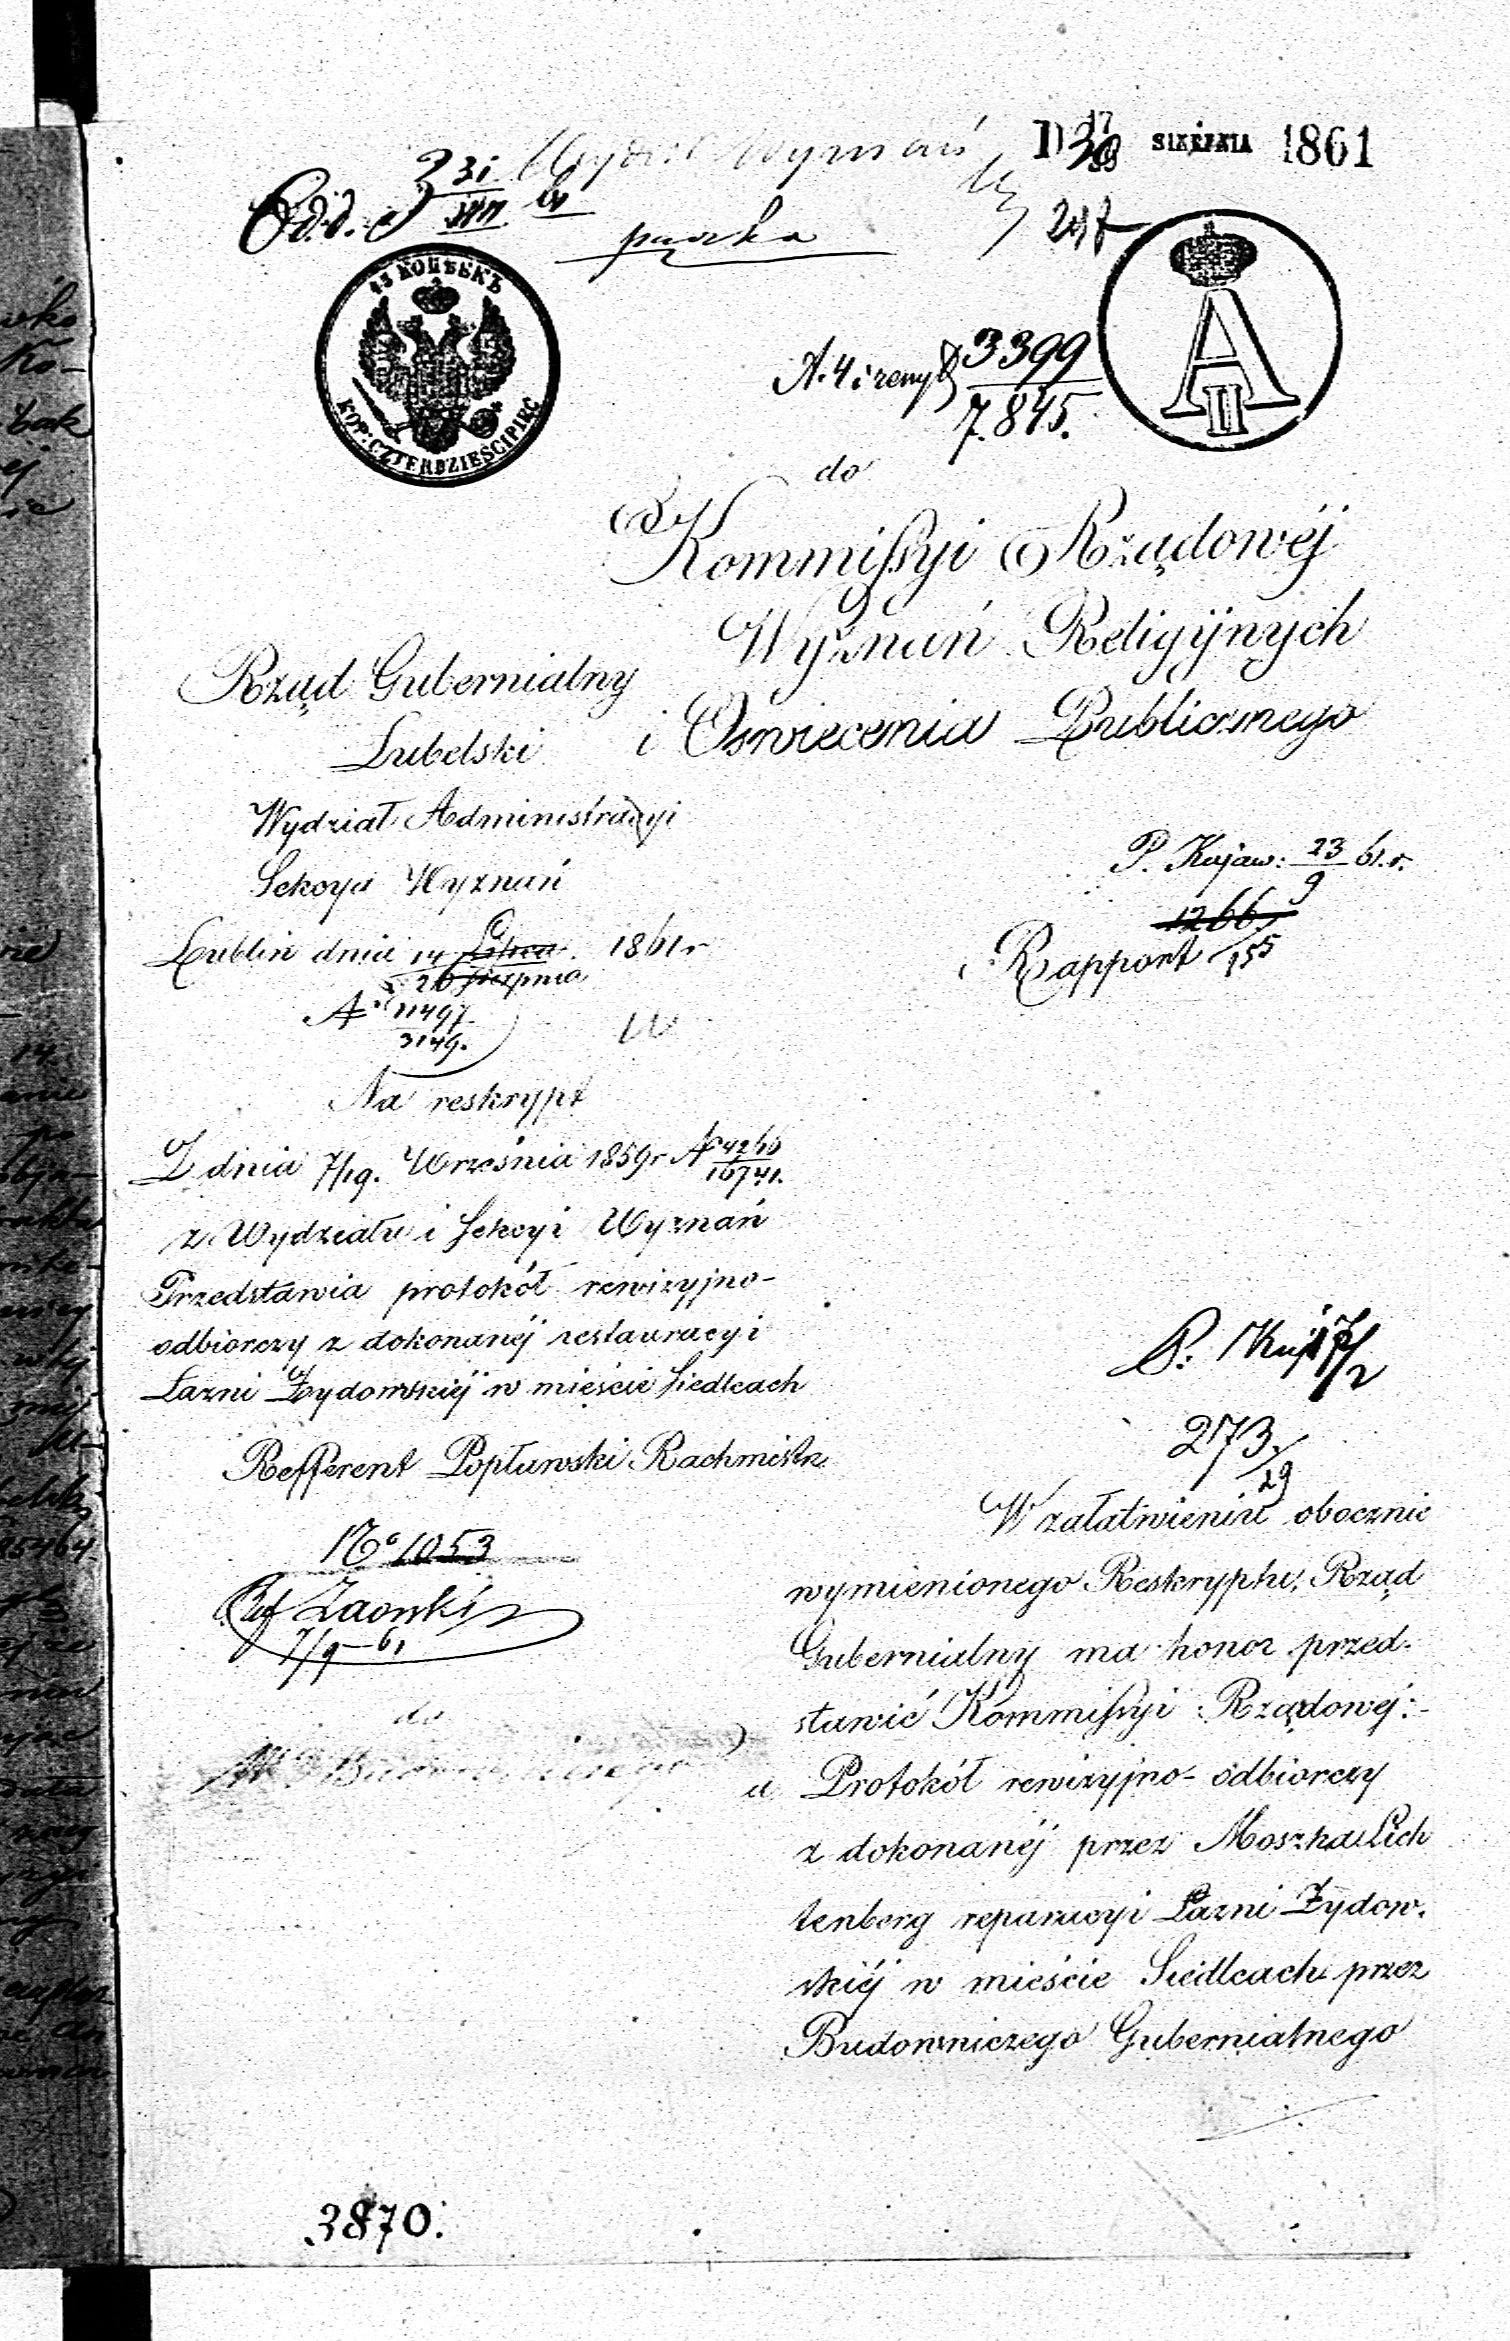 Wydział Wyznań
SIERPNIA 1861
31
paczka
45 КОПѢЕКЪ
KOP: CZTERDZIEŚCI PIĘĆ
A II
3399
7.845.
do
Kommissyi Rządowéj
Wyznań Religijnych
i Oswiecenia Publicznego
Rząd Gubernialny
Lubelski
Wydział Administracyi
Sekcya Wyznań
Lublin dnia 14/26 Sierpnia 1861 r
№ 11497
3149.
Na reskrypt
Z dnia 7/19. Września 1859 r № 4266
16741.
z Wydziału i Sekcyi Wyznań
Przedstawia protokół rewizyjno-
odbiorczy z dokonanéj restauracyi
Łazni Żydowskiéj w mieście Siedlcach
Refferent Popławski Rachmistrz
№ 1053
7/9-61
do
P. Kujaw: 23/9 61.r.
1266
Rapport
155
P. Kuj
273.
29
W załatwieniu obocznie
wymienionego Reskryptu, Rząd
Gubernialny ma honor przed-
stawić Kommissyi Rządowej:-
a Protokół rewizyjno-odbiorczy
z dokonanéj przez Moszka Lich
tenberg reparacyi Łazni Żydow.
skiéj w mieście Siedlcach przez
Budowniczego Gubernialnego
3870.